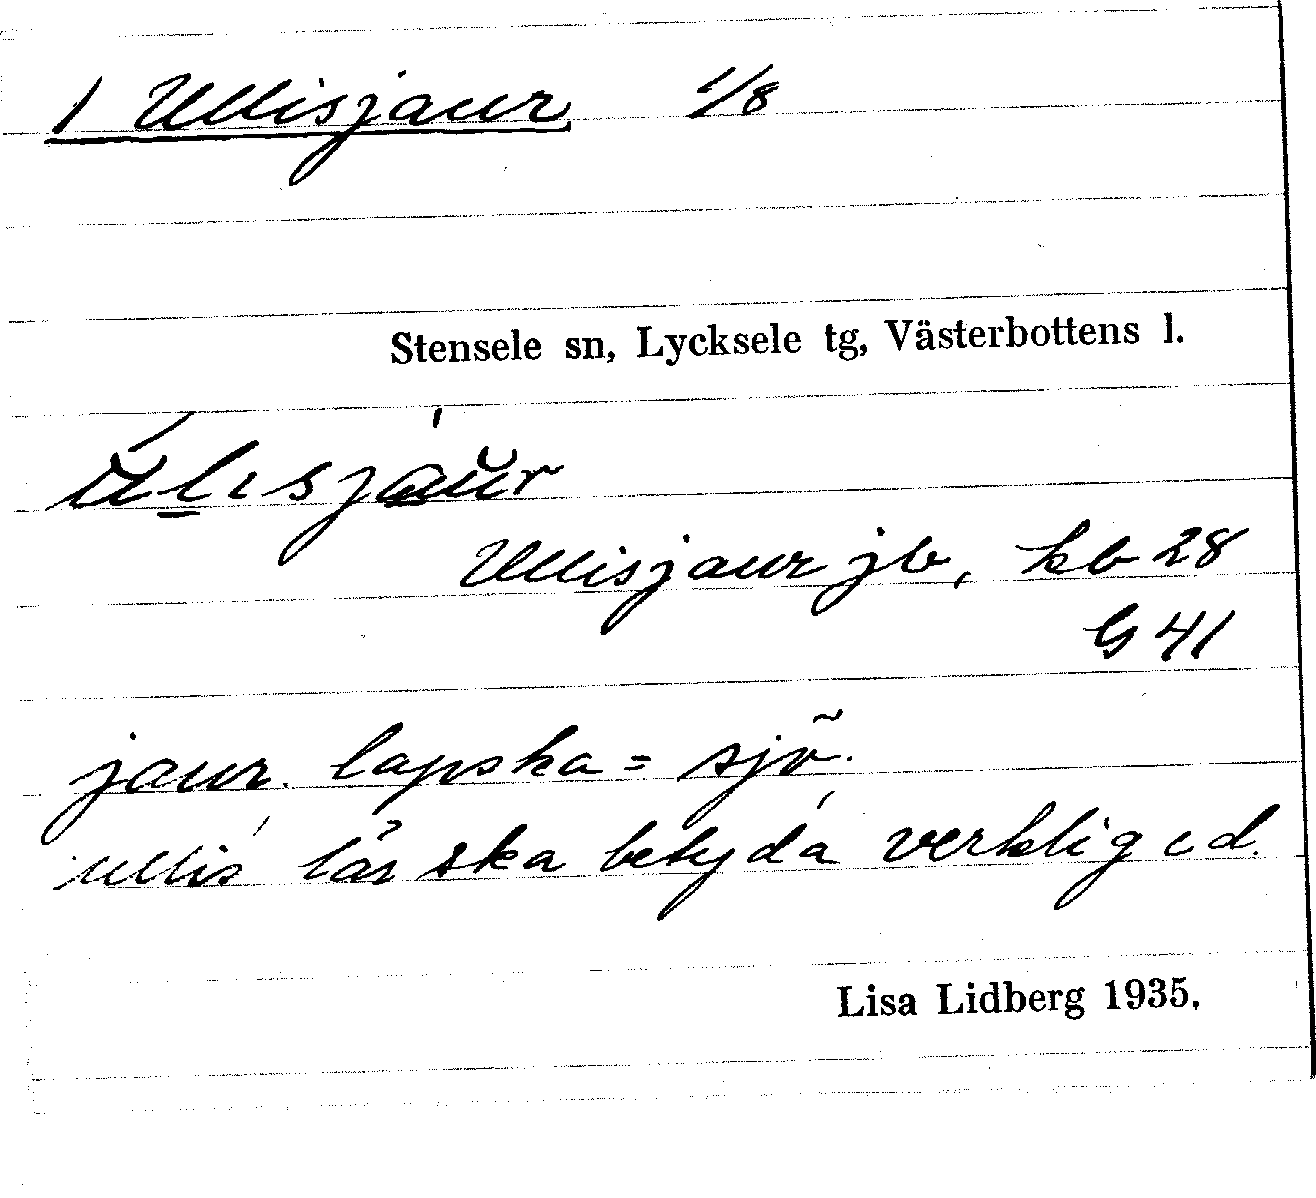 1 Ullisjaur 1/8
Stensele sn, Lycksele tg, Västerbottens l.
Ullisjaur jb, kb 28
G 41
jaur. lapska = sjö.
ullis lär ska betyda verklig e d.
Lisa Lidberg 1935.